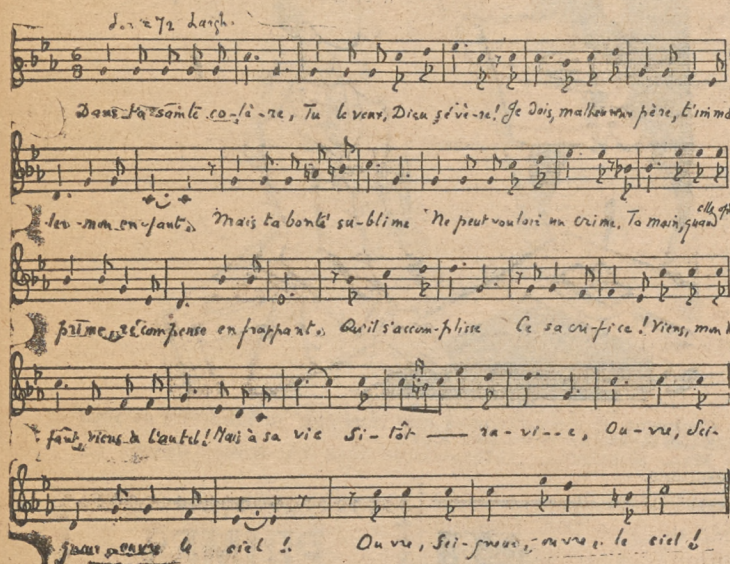 = 72 Largh.
6 8
Dans ta sainte co-lè-re, Tu le veux, Dieu sévè-re! Je dois, malheureux père, t'immo
ler mon en-fant. Mais ta bonté su-blime Ne peut vouloir un crime. Ta main, quand elle
prime, récompense en frappant. Qu'il s'accom-plisse Ce sa cri-fice! Viens, mon
fant, viens à l'autel! Mais à sa vie Si-tôt — ra-vi--e, Ou-vre, Sei-
gneur, ouvre le ciel! Ouvre, Sei-gneur, ouvre le ciel!